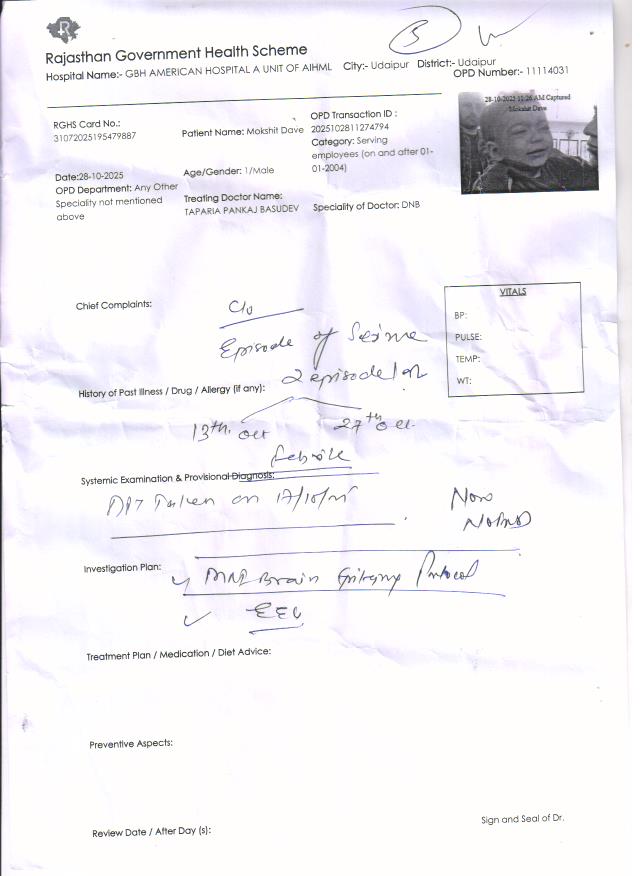 5
Rajasthan Government Health Scheme
Hospital Name:- GBH AMERICAN HOSPITAL A UNIT OF AIHML City:- Udaipur District:- Udaipur
OPD Number:- 11114031
28-10-2025 11:26 AM Captured
Mokshit Dave
RGHS Card No.:
31072025195479887
Patient Name: Mokshit Dave
OPD Transaction ID :
2025102811274794
Category: Serving
employees (on and after 01-
01-2004)
Date:28-10-2025
OPD Department: Any Other
Speciality not mentioned
above
Age/Gender: 1/Male
Treating Doctor Name:
TAPARIA PANKAJ BASUDEV
Speciality of Doctor: DNB
VITALS
BP:
PULSE:
TEMP:
WT:
Chief Complaints:
C/o
Episode of
2 episode
History of Past Illness / Drug / Allergy (if any):
13th. oct 27th oct.
febrile
Systemic Examination & Provisional Diagnosis:
DPT Taken on
Investigation Plan:
MRI Brain Protocol
EEG
Treatment Plan / Medication / Diet Advice:
Preventive Aspects:
Review Date / After Day (s):
Sign and Seal of Dr.